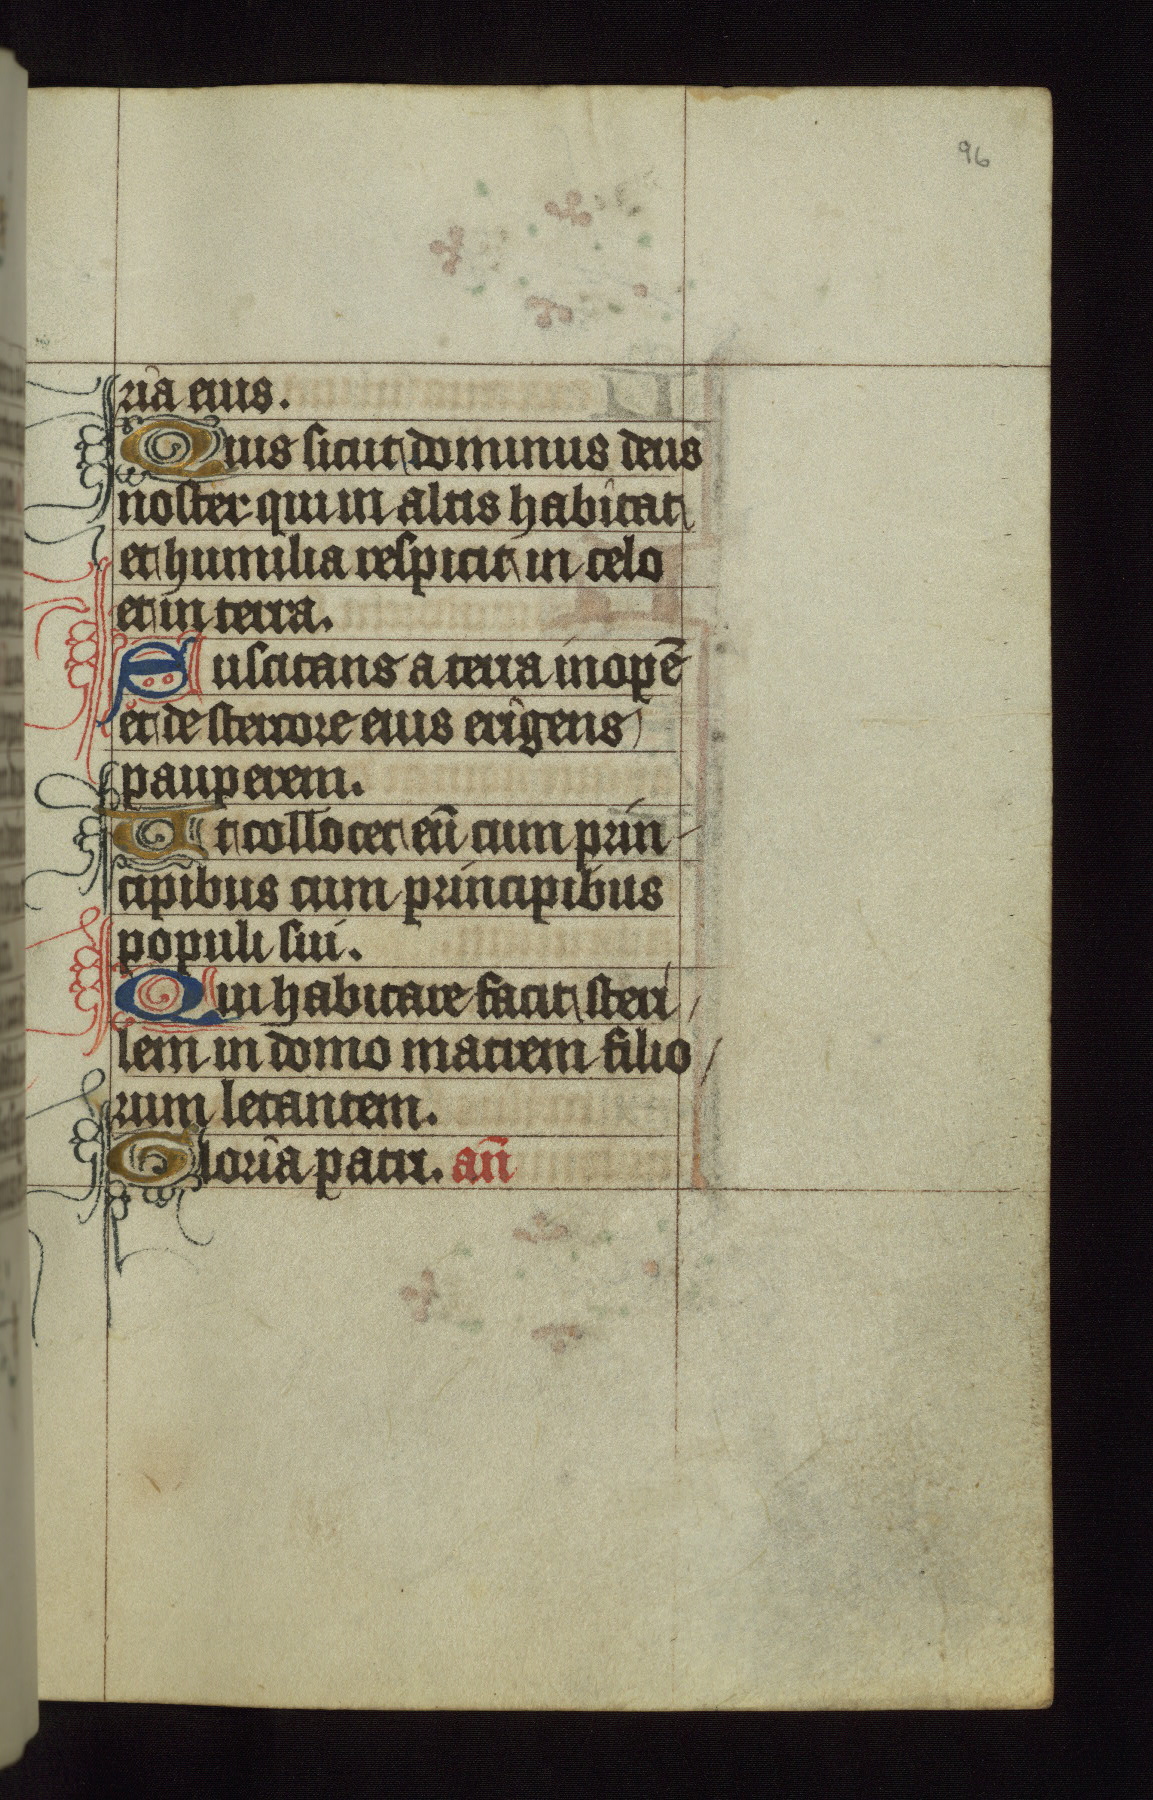 96
ria eius.
Quis sicut dominus deus
noster qui in altis habitat
et humilia respicit in celo
et in terra.
Suscitans a terra inopē
et de stercore eius erigens
pauperem.
Ut collocet eū cum prin
cipibus cum principibus
populi sui.
Qui habitare facit steri
lem in domo matrem filio
rum letantem.
Gloria patri. an̄